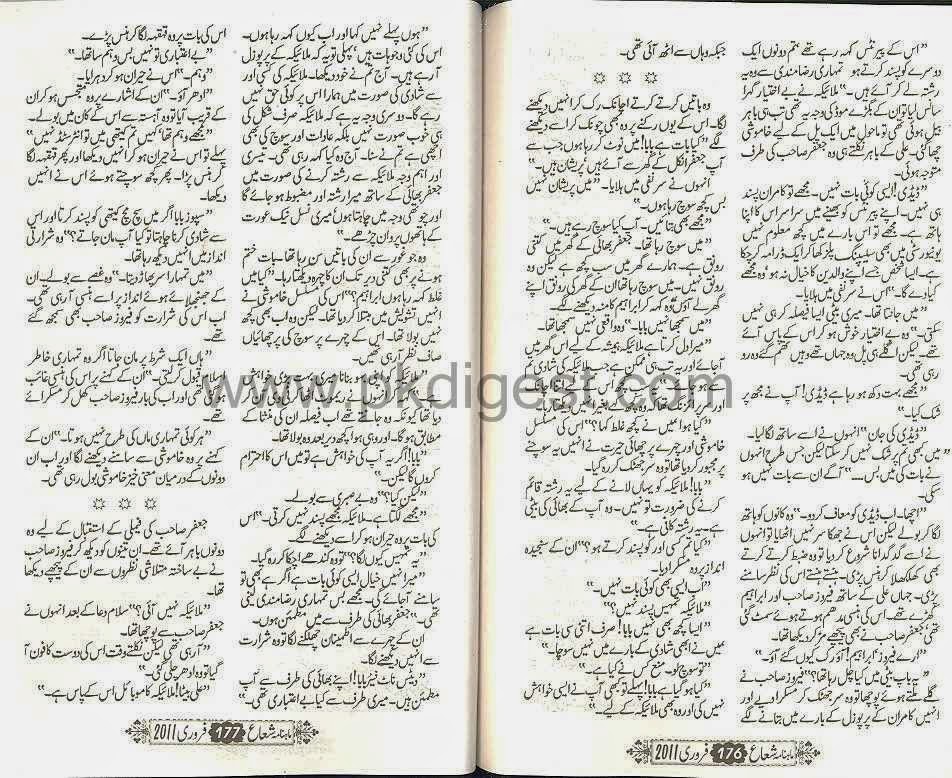 "اس کے پیرنٹس کہہ رہے تھے ہم دونوں ایک
دوسرے کو پسند کرتے ہو تمہاری رضامندی سے وہ یہ
رشتہ لے کر آئے ہیں۔" ملائیکہ نے بے اختیار گہرا
سانس لیا تو ان کے بگڑے موڈ کی وجہ یہ تھی تب ہی باہر
بیل ہوئی تھی تو ماحول میں ایک پل کے لیے خاموشی
چھا گئی۔ علی کے باہر نکلتے ہی وہ جعفر صاحب کی طرف
متوجہ ہوئی۔
"ڈیڈی! ایسی کوئی بات نہیں۔ مجھے تو کامران پسند
ہی نہیں۔ اپنے پیرنٹس کو بھیجنے میں سراسر اس کا اپنا
ہاتھ ہے۔ مجھے تو اس بارے میں کچھ معلوم نہیں
یونیورسٹی میں بھی سلیپنگ پلز کھا کر ایک ڈرامہ کر چکا
ہے۔ ایسا شخص جسے اپنے والدین کا خیال نہ ہو وہ مجھے
کیا دے گا۔" اس نے سر نفی میں ہلایا۔
"میں جانتا تھا۔ میری بیٹی ایسا فیصلہ کر ہی نہیں
سکتی۔" وہ بے اختیار خوش ہو کر اس کے پاس آئے
تھے۔ لیکن اگلے ہی پل وہ جہاں تھے وہیں تھم گئے وہ رو
رہی تھی۔
"مجھے بہت دکھ ہو رہا ہے ڈیڈی! آپ نے مجھ پر
شک کیا۔"
"ڈیڈی کی جان" انہوں نے اسے ساتھ لگا لیا۔
"میں بھی تم پر شک نہیں کر سکتا لیکن جس طرح انہوں
نے بات کی میں بس....." آگے ان سے بات نہیں ہو
سکی۔
"اچھا۔ اب ڈیڈی کو معاف کر دو۔" وہ کانوں کو ہاتھ
لگا کر بولے لیکن اس نے جھکا سر نہیں اٹھایا تو انہوں
نے اسے گدگدانا شروع کر دیا تو وہ ضبط کرتے کرتے
بھی کھلکھلا کر ہنس پڑی۔ ہنستے ہنستے اس کی نظر سامنے
پڑی۔ جہاں علی کے ساتھ فیروز صاحب اور ابراہیم
کھڑے تھے۔ اس کی ہنسی مدھم ہوتے ہوتے سمٹ گئی
تھی جعفر صاحب نے بھی پیچھے مڑ کر دیکھا تھا۔
"ارے فیروز، ابراہیم! آؤ رک کیوں گئے آؤ۔"
"یہ باپ بیٹی میں کیا چل رہا تھا؟" فیروز صاحب نے
گلے ملتے ہوئے پوچھا تو وہ سر جھٹک کر مسکرا دیے اور
انہیں کامران کے پرپوزل کے بارے میں بتانے لگے
جبکہ وہاں سے اٹھ آئی تھی۔
وہ باتیں کرتے کرتے اچانک رک کر انہیں دیکھنے
لگا۔ اس کے یوں رکنے پر وہ بھی چونک کر اسے دیکھنے
لگے "کیا بات ہے بابا! میں نوٹ کر رہا ہوں جب سے
آپ جعفر انکل کے گھر سے آئے ہیں پریشان ہیں۔"
انہوں نے سر نفی میں ہلایا۔ "میں پریشان نہیں
بس کچھ سوچ رہا ہوں۔"
"مجھے بھی بتائیں۔ آپ کیا سوچ رہے ہیں۔"
"میں سوچ رہا تھا۔ جعفر بھائی کے گھر میں کتنی
رونق ہے۔ ہمارے گھر میں سب کچھ ہے لیکن وہ
رونق نہیں۔ میں سوچ رہا تھا ان کے گھر کی رونق اپنے
گھر لے آؤں" وہ کہہ کر ابراہیم کا منہ دیکھنے لگے۔
"میں سمجھا نہیں بابا۔" وہ واقعی نہیں سمجھا تھا۔
"میرا دل کرتا ہے ملائیکہ ہمیشہ کے لیے اس گھر میں
آ جائے اور یہ تب ہی ممکن ہے جب ملائیکہ کی شادی تم
سے ہو جائے۔"
"کیا ہوا میں نے کچھ غلط کہا؟" اس کی مسلسل
خاموشی اور چہرے پر چھائی حیرت نے انہیں یہ سوچنے
پر مجبور کر دیا تھا تو وہ سر جھٹک کر رہ گیا۔
"بابا! ملائیکہ کو یہاں لانے کے لیے یہ رشتہ قائم
کرنے کی ضرورت تو نہیں۔ وہ آپ کے بھائی کی بیٹی
ہے۔ یہ رشتہ کافی ہے۔"
"کیا تم کسی اور کو پسند کرتے ہو؟" ان کے سنجیدہ
انداز پر وہ مسکرا دیا۔
"اب ایسی بھی کوئی بات نہیں۔"
"ملائیکہ تمہیں پسند نہیں؟"
"ایسا کچھ بھی نہیں بابا! صرف اتنی سی بات ہے
میں نے ابھی شادی کے بارے میں نہیں سوچا۔"
"تو سوچ لو۔ منع کس نے کیا ہے۔"
"کیا ہو گیا ہے بابا! پہلے تو کبھی آپ نے ایسی خواہش
نہیں کی اور وہ بھی ملائیکہ کے لیے۔"
ماہنامہ شعاع 176 فروری 2011
"ہوں پہلے نہیں کہا اور اب کیوں کہہ رہا ہوں۔
اس کی کئی وجوہات ہیں، پہلی تو یہ کہ ملائیکہ کے پرپوزل
آ رہے ہیں۔ آج تم نے خود دیکھا۔ ملائیکہ کی کسی اور
سے شادی کی صورت میں ہمارا اس پر کوئی حق نہیں
رہے گا۔ دوسری وجہ یہ ہے کہ ملائیکہ صرف شکل کی
ہی خوب صورت نہیں بلکہ عادات اور سوچ کی بھی
اچھی ہے تم نے سنا۔ آج وہ کیا کہہ رہی تھی۔ تیسری
اور اہم وجہ ملائیکہ سے رشتہ کرنے کی صورت میں
جعفر بھائی کے ساتھ میرا رشتہ اور مضبوط ہو جائے گا
اور چوتھی وجہ میں چاہتا ہوں میری نسل نیک عورت
کے ہاتھوں پروان چڑھے۔"
وہ جو غور سے ان کی باتیں سن رہا تھا۔ بات ختم
ہونے پر بھی کتنی دیر تک ان کا چہرہ دیکھتا رہا۔ "کیا میں
غلط کہہ رہا ہوں ابراہیم؟" اس کی مسلسل خاموشی نے
انہیں تشویش میں مبتلا کر دیا تھا۔ لیکن وہ اب بھی کچھ
نہیں بولا تھا۔ اس کے چہرے پر سوچ کی پرچھائیاں
صاف نظر آ رہی تھیں۔
"ملائیکہ کو اپنی بہو بنانا میری بہت بڑی خواہش
مطابق ہوگا۔ اور وہی ہوا کچھ دیر بعد وہ بولا تھا۔
"بابا! اگر یہ آپ کی خواہش ہے تو میں اس کا احترام
کروں گا لیکن۔"
"لیکن کیا؟" وہ بے صبری سے بولے۔
"مجھے لگتا ہے۔ ملائیکہ مجھے پسند نہیں کرتی۔" اس
کی بات پر وہ حیران ہو کر اسے دیکھنے لگے۔
"یہ تمہیں کیوں لگا؟" تو وہ کندھے اچکا کر رہ گیا۔
"میرا نہیں خیال ایسی کوئی بات ہے اگر ہے بھی تو
سامنے آ جائے گی۔ مجھے بس تمہاری رضامندی لینی
تھی۔ جعفر بھائی کی طرف سے میں مطمئن ہوں۔"
ان کے چہرے سے اطمینان چھلکنے لگا تو وہ شرارت
سے انہیں دیکھنے لگا۔
"دیٹس ناٹ فیئر بابا! اپنے بھائی کی طرف سے آپ
مطمئن ہیں۔ میری طرف سے کیا بے اعتباری تھی۔"
اس کی بات پر وہ قہقہہ لگا کر ہنس پڑے۔
"بے اعتباری تو نہیں بس وہم سا تھا۔"
"وہم۔" اس نے حیران ہو کر دہرایا۔
"ادھر آؤ۔" ان کے اشارے پر وہ متجسس ہو کر ان
کے قریب آیا تو وہ آہستہ سے اس کے کان میں بولے۔
"مجھے وہم تھا کہیں تم کیتھی میں تو انٹرسٹڈ نہیں۔"
پہلے تو اس نے حیران ہو کر انہیں دیکھا اور پھر قہقہہ لگا
کر ہنس پڑا۔ پھر کچھ سوچتے ہوئے اس نے انہیں
دیکھا۔
"سپوز بابا! اگر میں سچ مچ کیتھی کو پسند کرتا اور اس
سے شادی کرنا چاہتا تو کیا آپ مان جاتے؟" وہ شرارتی
انداز میں انہیں دیکھ رہا تھا۔
"میں تمہارا سر پھاڑ دیتا۔" وہ غصے سے بولے۔ ان
کے جھنجلائے ہوئے انداز پر اسے ہنسی آ رہی تھی۔
اب اس کی شرارت کو فیروز صاحب بھی سمجھ گئے
تھے۔
"ہاں ایک شرط پر مان جاتا اگر وہ تمہاری خاطر
اسلام قبول کر لیتی۔" ان کے کہنے پر اس کی ہنسی غائب
ہوئی تھی اور اب کی بار فیروز صاحب کھل کر مسکرائے
تھے۔
"ہر کوئی تمہاری ماں کی طرح نہیں ہوتا۔" ان کے
کہنے پر وہ خاموشی سے سامنے دیکھنے لگا اور اب ان
دونوں کے درمیان معنی خیز خاموشی بول رہی تھی۔
جعفر صاحب کی فیملی کے استقبال کے لیے وہ
دونوں باہر آئے تھے۔ ان تینوں کو دیکھ کر فیروز صاحب
نے بے ساختہ متلاشی نظروں سے ان کے پیچھے دیکھا
تھا۔
"ملائیکہ نہیں آئی؟" سلام دعا کے بعد انہوں نے
جعفر صاحب سے پوچھا تھا۔
"آ رہی تھی لیکن نکلتے وقت اس کی دوست کا فون آ
گیا تو وہ ادھر چلی گئی۔"
"علی بیٹا! ملائیکہ کا موبائل اس کے پاس ہے۔"
ماہنامہ شعاع 177 فروری 2011
www.pkdigest.com